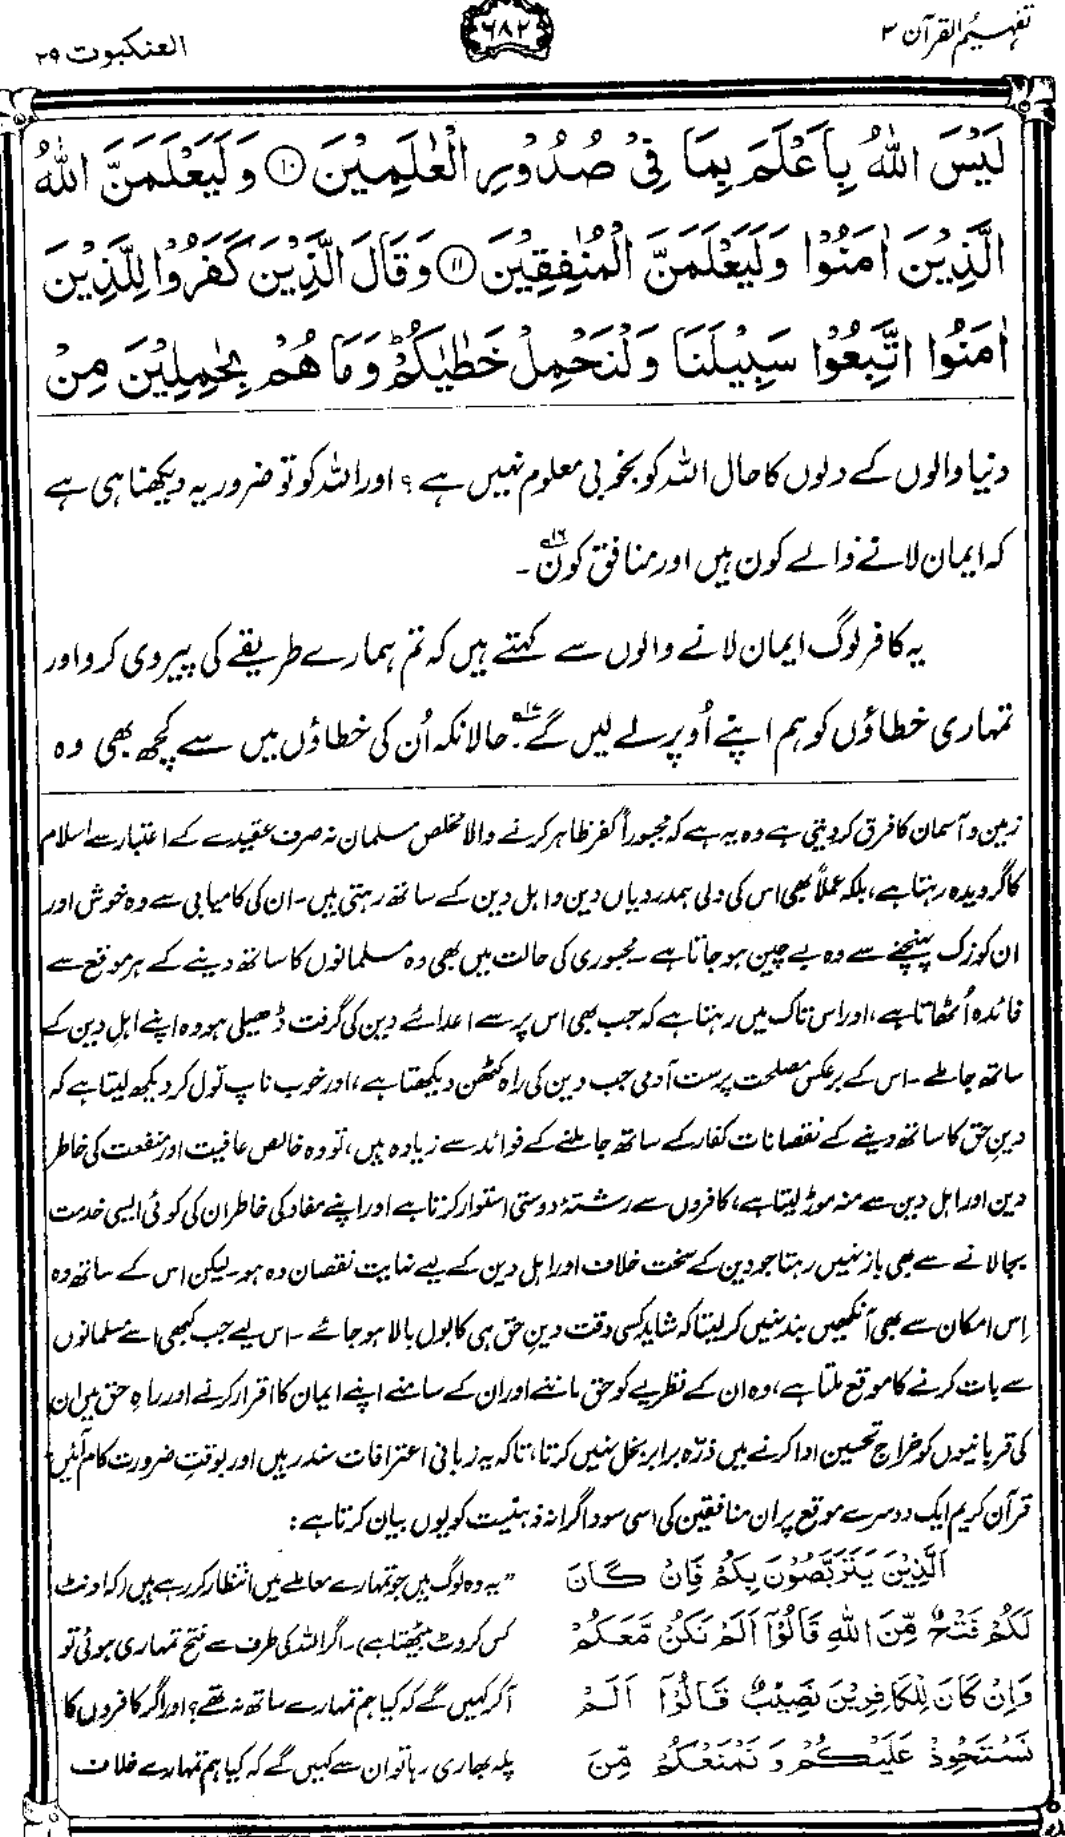 تفہیم القرآن ۳
۶۸۲
العنکبوت ۲۹
لَيْسَ اللّٰهُ بِاَعْلَمَ بِمَا فِيْ صُدُوْرِ الْعٰلَمِيْنَ ۝۱۰ وَلَيَعْلَمَنَّ اللّٰهُ
الَّذِيْنَ اٰمَنُوْا وَلَيَعْلَمَنَّ الْمُنٰفِقِيْنَ ۝۱۱ وَقَالَ الَّذِيْنَ كَفَرُوْا لِلَّذِيْنَ
اٰمَنُوا اتَّبِعُوْا سَبِيْلَنَا وَلْنَحْمِلْ خَطٰيٰكُمْ ؕ وَمَا هُمْ بِحٰمِلِيْنَ مِنْ
دنیا والوں کے دلوں کا حال اللہ کو بخوبی معلوم نہیں ہے؟ اور اللہ کو تو ضرور یہ دیکھنا ہی ہے
کہ ایمان لانے والے کون ہیں اور منافق کون۱۶۔
یہ کافر لوگ ایمان لانے والوں سے کہتے ہیں کہ تم ہمارے طریقے کی پیروی کرو اور
تمہاری خطاؤں کو ہم اپنے اُوپر لے لیں گے۱۷۔ حالانکہ اُن کی خطاؤں میں سے کچھ بھی وہ
زمین و آسمان کا فرق کر دیتی ہے وہ یہ ہے کہ مجبوراً کفر ظاہر کرنے والا مخلص مسلمان نہ صرف عقیدے کے اعتبار سے اسلام
کا گرویدہ رہتا ہے، بلکہ عملاً بھی اس کی دلی ہمدردیاں دین و اہل دین کے ساتھ رہتی ہیں۔ ان کی کامیابی سے وہ خوش اور
ان کو زک پہنچنے سے وہ بے چین ہو جاتا ہے۔ مجبوری کی حالت میں بھی وہ مسلمانوں کا ساتھ دینے کے ہر موقع سے
فائدہ اُٹھاتا ہے، اور اس تاک میں رہتا ہے کہ جب بھی اس پر سے اعدائے دین کی گرفت ڈھیلی ہو وہ اپنے اہلِ دین کے
ساتھ جا ملے۔ اس کے برعکس مصلحت پرست آدمی جب دین کی راہ کٹھن دیکھتا ہے، اور خوب ناپ تول کر دیکھ لیتا ہے کہ
دینِ حق کا ساتھ دینے کے نقصانات کفار کے ساتھ جا ملنے کے فوائد سے زیادہ ہیں، تو وہ خالص عافیت اور منفعت کی خاطر
دین اور اہل دین سے منہ موڑ لیتا ہے، کافروں سے رشتۂ دوستی استوار کرتا ہے اور اپنے مفاد کی خاطر ان کی کوئی ایسی خدمت
بجا لانے سے بھی باز نہیں رہتا جو دین کے سخت خلاف اور اہل دین کے لیے نہایت نقصان دہ ہو۔ لیکن اس کے ساتھ وہ
اِس امکان سے بھی آنکھیں بند نہیں کر لیتا کہ شاید کسی وقت دینِ حق ہی کا بول بالا ہو جائے۔ اس لیے جب کبھی اسے مسلمانوں
سے بات کرنے کا موقع ملتا ہے، وہ ان کے نظریے کو حق ماننے اور ان کے سامنے اپنے ایمان کا اقرار کرنے اور راہِ حق میں ان
کی قربانیوں کو خراجِ تحسین ادا کرنے میں ذرّہ برابر بخل نہیں کرتا، تاکہ یہ زبانی اعترافات سند رہیں اور بوقتِ ضرورت کام آئیں۔
قرآن کریم ایک دوسرے موقع پر ان منافقین کی اسی سوداگرانہ ذہنیت کو یوں بیان کرتا ہے:
اَلَّذِيْنَ يَتَرَبَّصُوْنَ بِكُمْ فَاِنْ كَانَ
لَكُمْ فَتْحٌ مِّنَ اللّٰهِ قَالُوْٓا اَلَمْ نَكُنْ مَّعَكُمْ
وَاِنْ كَانَ لِلْكَافِرِيْنَ نَصِيْبٌ قَالُوْٓا اَلَمْ
نَسْتَحْوِذْ عَلَيْكُمْ وَ نَمْنَعْكُمْ مِّنَ
"یہ وہ لوگ ہیں جو تمہارے معاملے میں انتظار کر رہے ہیں (کہ اونٹ
کس کروٹ بیٹھتا ہے)۔ اگر اللہ کی طرف سے فتح تمہاری ہوئی تو
آ کر کہیں گے کہ کیا ہم تمہارے ساتھ نہ تھے؟ اور اگر کافروں کا
پلہ بھاری رہا تو ان سے کہیں گے کہ کیا ہم تمہارے خلاف